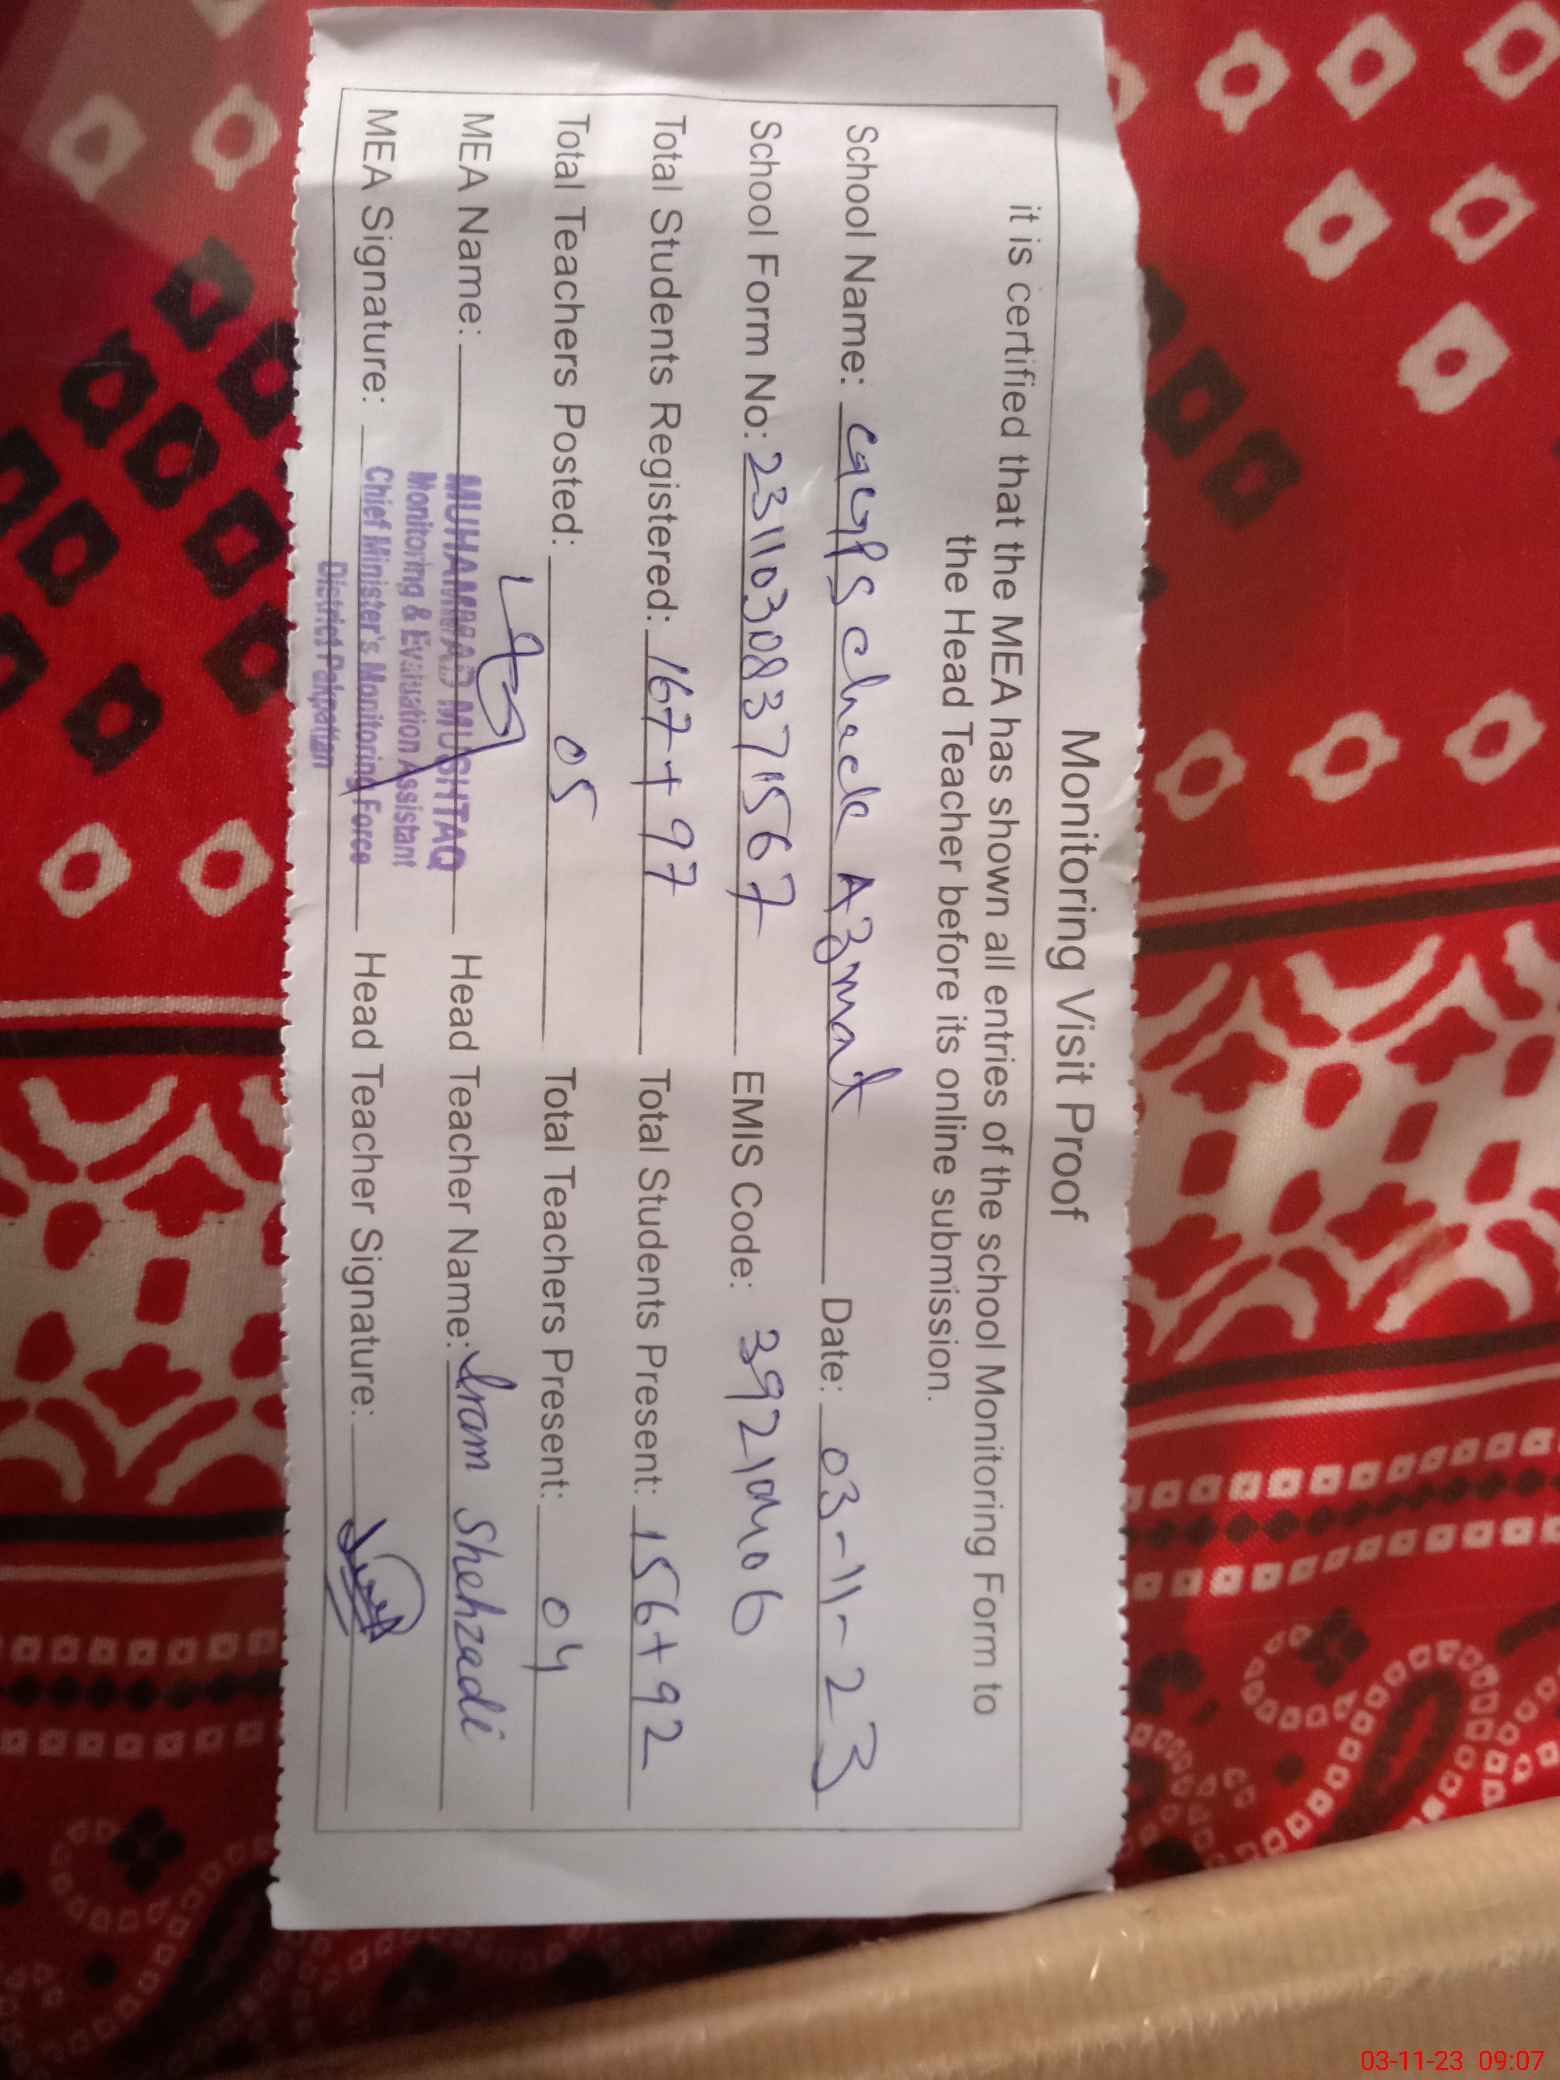 Monitoring Visit Proof
it is certified that the MEA has shown all entries of the school Monitoring Form to
the Head Teacher before its online submission.
School Name: GGPS chack Azmat Date: 03-11-23
School Form No: 23110308371567 EMIS Code:
Total Students Registered: 167+97 Total Students Present: 156+92
Total Teachers Posted: 05 Total Teachers Present: 04
MEA Name: MUHAMMAD MUSHTAQ Head Teacher Name: Iram Shehzadi
Monitoring & Evaluation Assistant
MEA Signature: Chief Minister's Monitoring Force Head Teacher Signature:
District Pakpattan
03-11-23 09:07